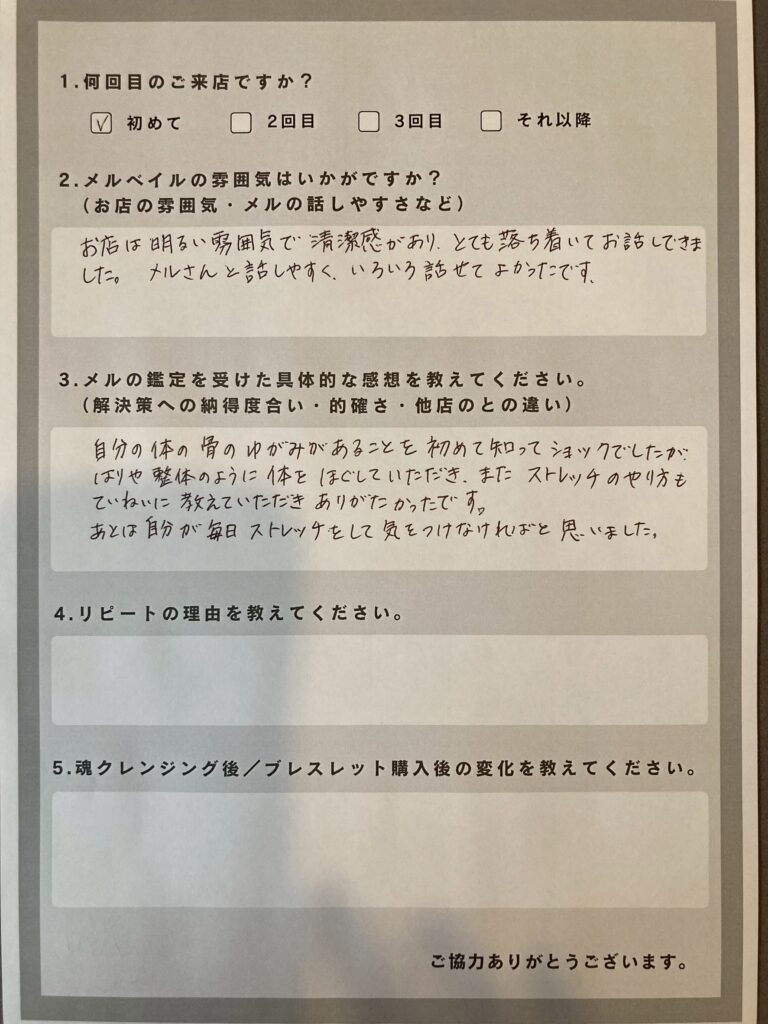 1.何回目のご来店ですか？
☑ 初めて □ 2回目 □ 3回目 □ それ以降
2.メルベイルの雰囲気はいかがですか？
（お店の雰囲気・メルの話しやすさなど）
お店は明るい雰囲気で清潔感があり、とても落ち着いてお話しできま
した。 メルさんと話しやすく、いろいろ話せてよかったです。
3.メルの鑑定を受けた具体的な感想を教えてください。
（解決策への納得度合い・的確さ・他店のとの違い）
自分の体の骨のゆがみがあることを初めて知ってショックでしたが、
はりや整体のように体をほぐしていただき、また ストレッチのやり方も
ていねいに教えていただきありがたかったです。
あとは自分が毎日ストレッチをして気をつけなければと思いました。
4.リピートの理由を教えてください。
5.魂クレンジング後／ブレスレット購入後の変化を教えてください。
ご協力ありがとうございます。